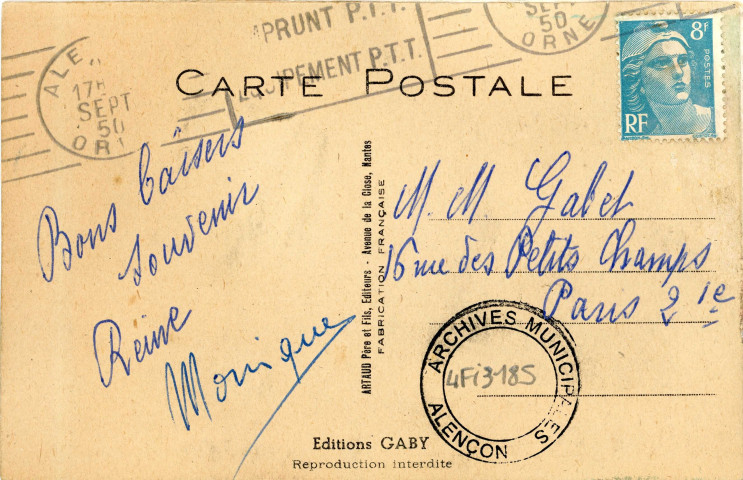 EMPRUNT P.T.T.
EQUIPEMENT P.T.T.
ALE
17H
SEPT
50
OR
SEPT
50
ORNE
8F
POSTES
RF
CARTE POSTALE
Bons baisers
Souvenir
Reine
Monique
ARTAUD Père et Fils, Editeurs - Avenue de la Close, Nantes
FABRICATION FRANÇAISE
M. M. Gabet
16 rue des Petits Champs
Paris 2ie
ARCHIVES MUNICIPALES
ALENÇON
4Fi3-185
Editions GABY
Reproduction interdite